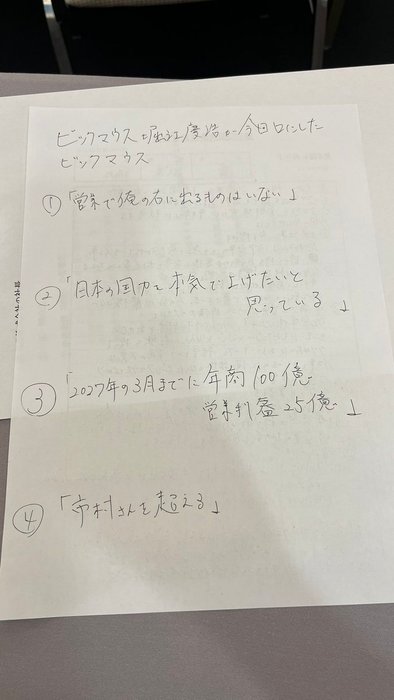 ビックマウス堀江慶浩が今日口にした
ビックマウス
① 「営業で俺の右に出るものはいない」
② 「日本の国力を本気で上げたいと
思っている 」
③ 「2027年の3月までに年商100億
営業利益25億」
④ 「市村さんを超える」